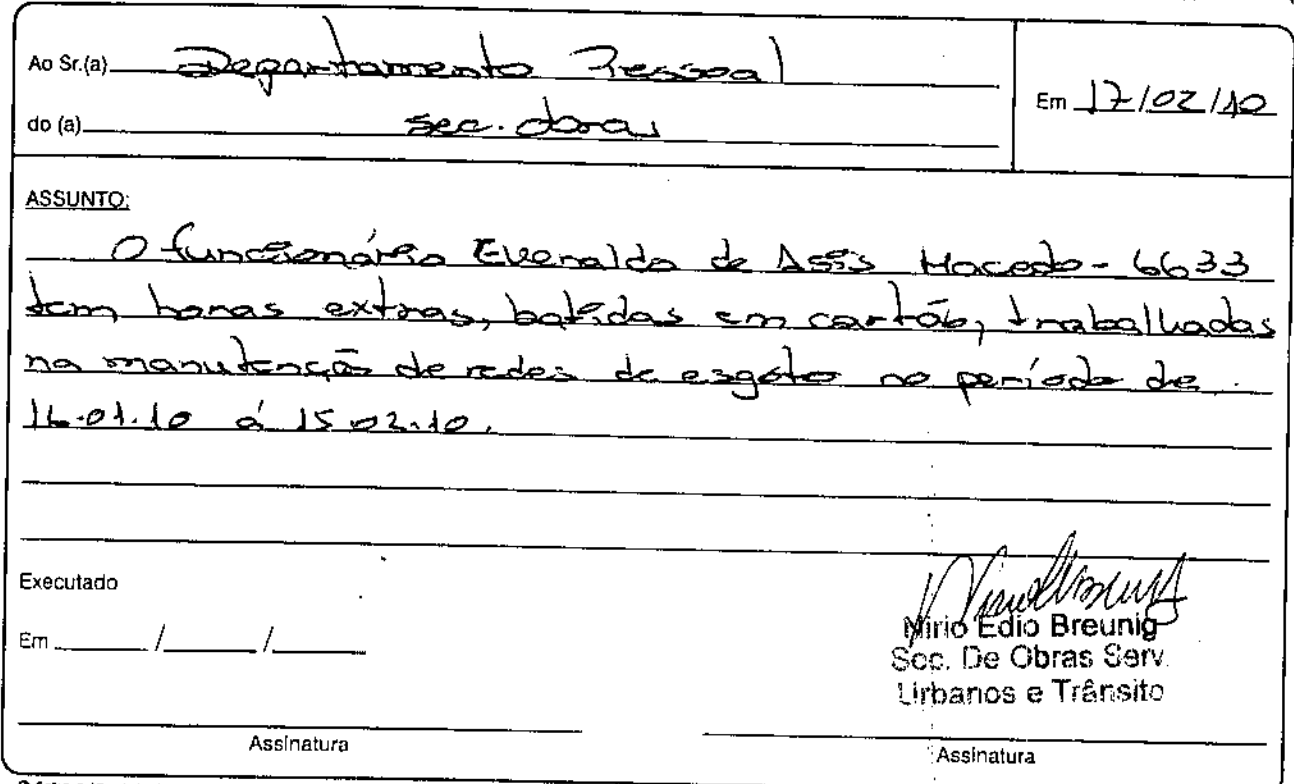 Ao Sr.(a) Departamento Pessoal
Em 17/02/10
do (a) sec. obras
ASSUNTO:
O funcionário Evenaldo de Assis Macedo - 6633
tem horas extras, batidas em cartão, trabalhadas
na manutenção de redes de esgoto no período de
16.01.10 á 15.02.10.
Executado
Em ____/____/____
Nirio Edio Breunig
Sec. De Obras Serv.
Urbanos e Trânsito
Assinatura
Assinatura